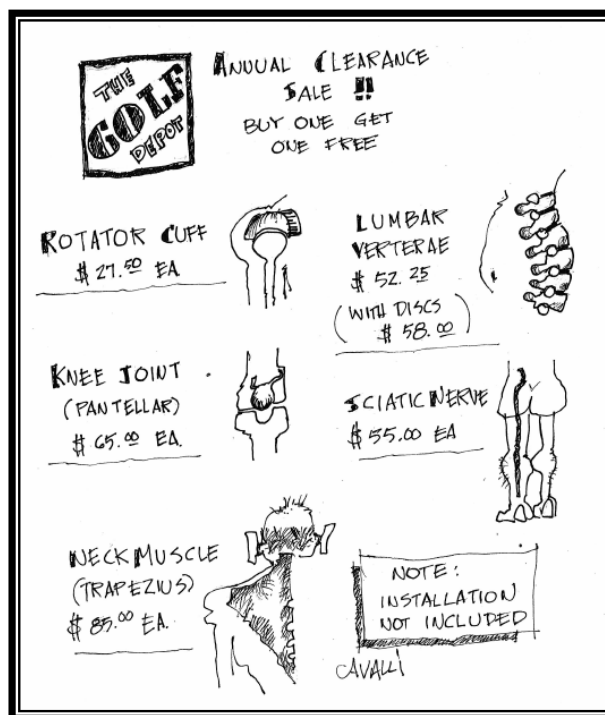 THE
GOLF
DEPOT
ANNUAL CLEARANCE
SALE !!
BUY ONE GET
ONE FREE
ROTATOR CUFF
$ 27.50 EA
LUMBAR
VERTERAE
$ 52.25
(WITH DISCS
$ 58.00)
KNEE JOINT
(PANTELLAR)
$ 65.00 EA.
SCIATIC NERVE
$ 55.00 EA
NECK MUSCLE
(TRAPEZIUS)
$ 85.00 EA.
NOTE:
INSTALLATION
NOT INCLUDED
CAVALLI